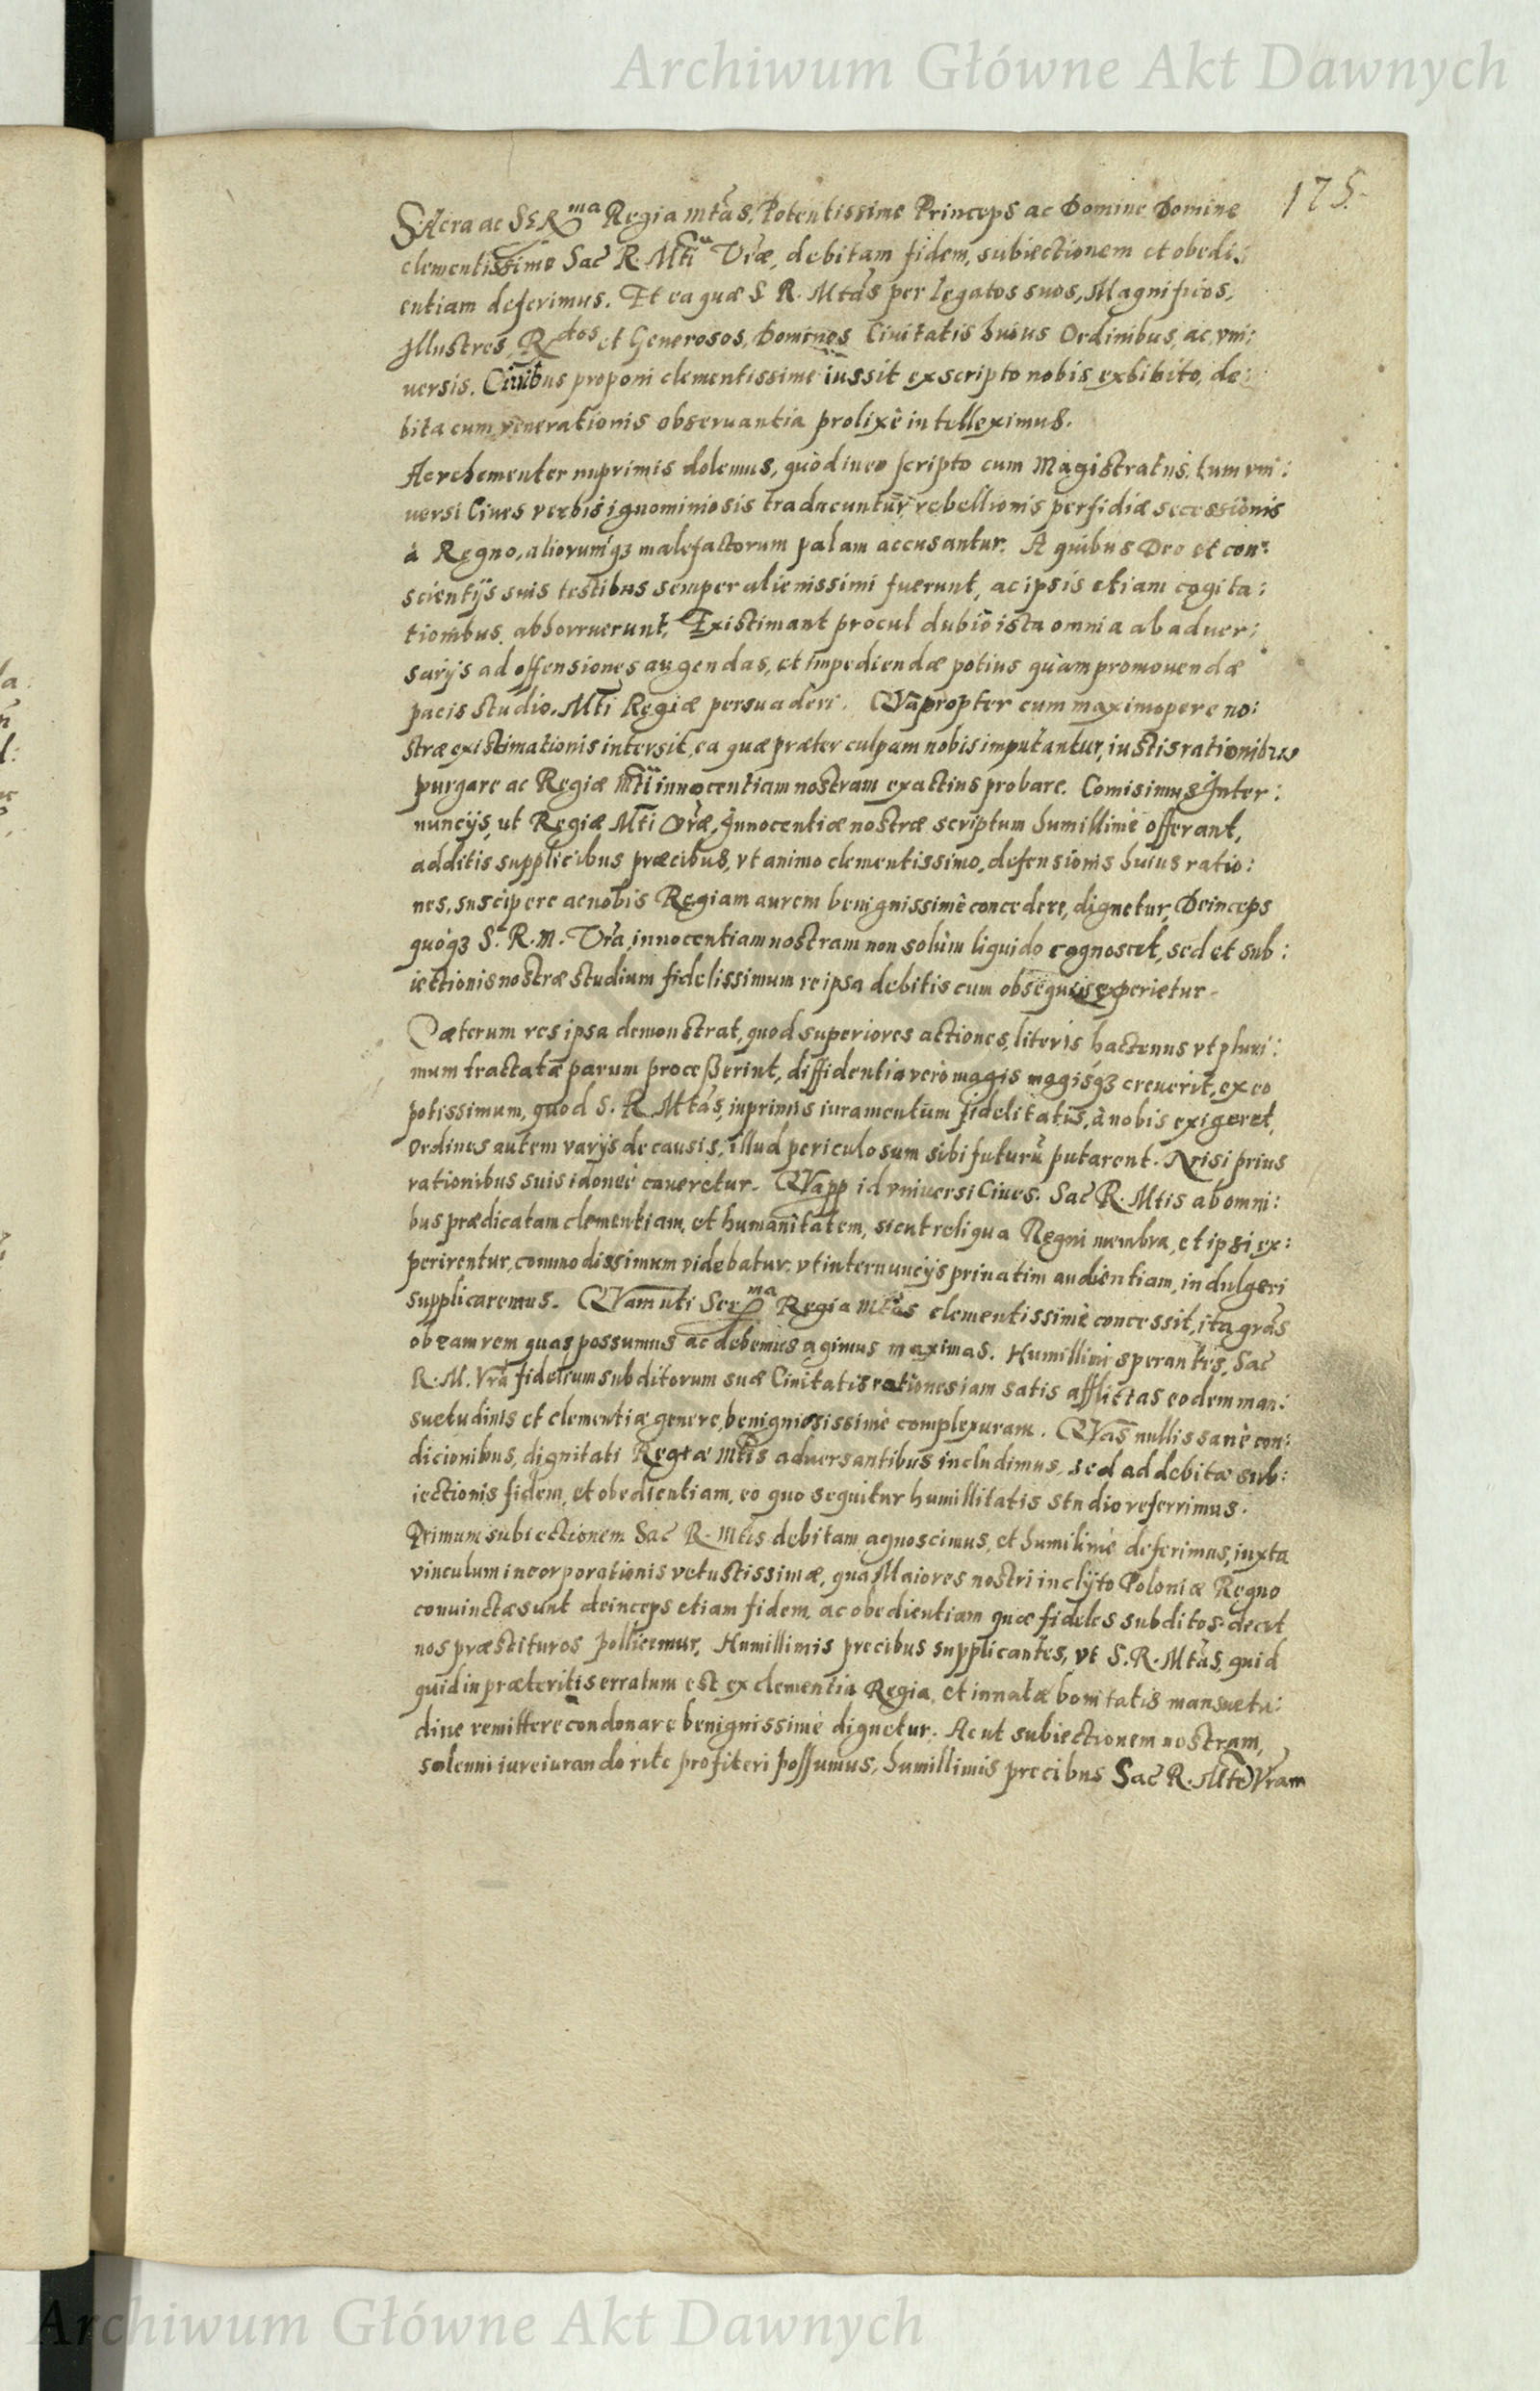 Archiwum Główne Akt Dawnych
175.
SAcra ac SERma Regia Mtãs, Potentissime Princeps ac Domine Domine
clementissime Sac̃ R. Mti Vr̃æ, debitam fidem, subiectionem et obedi:
entiam deferimus. Et ea quæ S. R. Mtãs per legatos suos, Magnificos,
Illustres, Rdos et Generosos, Dominos Ciuitatis huius Ordinibus, ac vni:
uersis. Ciuibus proponi clementissime iussit ex scripto nobis exhibito, de:
bita cum venerationis obseruantia prolixè intelleximus.
Ac vehementer inprimis dolemus, quòd in eo scripto cum Magistratus, tum vni:
uersi Ciues verbis ignominiosis traducuntur, rebellionis perfidiæ secessionis
à Regno, aliorumqꝫ malefactorum palam accusantur. A quibus Deo et con:
scientijs suis testibus semper alienissimi fuerunt, ac ipsis etiam cogita:
tionibus abhorruerunt. Existimant procul dubio ista omnia ab aduer:
sarijs ad offensiones augendas, et impediendæ potius quàm promouendæ
pacis studio, Mti Regiæ persuaderi. QVapropter cum maximopere no:
stræ existimationis intersit, ea quæ præter culpam nobis imputantur, iustis rationibus
purgare ac Regiæ Mti innocentiam nostram exactius probare. Comisimus Inter:
nuncijs, ut Regiæ Mti Vr̃æ, Innocentiæ nostræ scriptum humillimè offerant,
additis supplicibus præcibus, vt animo clementissimo, defensionis huius ratio:
nes, suscipere ac nobis Regiam aurem benignissimè concedere, dignetur, Deinceps
quóqꝫ S. R. M. Vr̃a, innocentiam nostram non solùm liquido cognoscet, sed et sub:
iectionis nostræ studium fidelissimum reipsa debitis cum obsequijs experietur.
Cæterum res ipsa demonstrat, quod superiores actiones, literis hactenus vt pluri:
mum tractatæ parum proceßerint, diffidentia verò magis magisqꝫ creuerit, ex eo
potissimum, quod S. R. Mtãs, inprimis iuramentum fidelitatis, à nobis exigeret,
Ordines autem varijs de causis, illud periculosum sibi futurũ putarent. Nisi prius
rationibus suis idoneè caueretur. QVapp id vniuersi Ciues. Sac̃ R. Mtis ab omni:
bus prædicatam clementiam, et humanitatem, sicut reliqua Regni membra, et ipsi ex:
perirentur, commodissimum videbatur, vt internuncijs priuatim audientiam, indulgeri
supplicaremus. QVam uti Serma Regia Mtãs clementissimè concessit, ita grãs
ob eam rem quas possumus ac debemus agimus maximas. Humillimè sperantes, Sac̃
R. M. Vrã fidelium subditorum suæ Ciuitatis rationes iam satis afflictas eodem man:
suetudinis et clementiæ genere, benigniosissimè complexuram. QVas nullis sanè con:
dicionibus, dignitati Regiæ Mtis aduersantibus includimus, sed ad debitæ sub:
iectionis fidem, et obedientiam, eo quo sequitur humillitatis studio referrimus.
Primum subiectionem Sac̃ R. Mtis debitam agnoscimus, et humilimè deferimus, iuxta
vinculum incorporationis vetustissimæ, qua Maiores nostri inclÿto Poloniæ Regno
conuinctæ sunt deinceps etiam fidem, ac obedientiam quæ fideles subditos decet
nos præstituros pollicemur. Humillimis precibus supplicantes, vt S. R. Mtãs, quid
quid in præteritis erratum est ex clementia Regia, et innatæ bonitatis mansuetu:
dine remittere condonare benignissimè dignetur. Ac ut subiectionem nostram,
solenni iureiurando rite profiteri possumus, humillimis precibus Sac̃ R. Mte Vram
Archiwum Główne Akt Dawnych